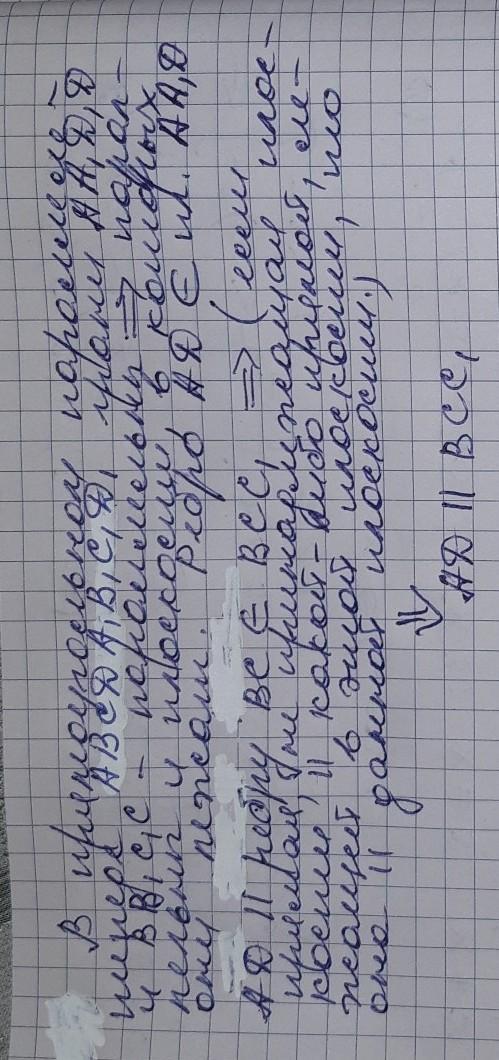 В прямоугольном параллеле-
пипеде ABCDA₁B₁C₁D₁ грани AA₁D₁D
и BB₁C₁C - параллельны ⇒ парал-
лельны и плоскости в которых
они лежат. Ребро AD ∈ пл. AA₁D
AD || ребру BC ∈ BCC₁ ⇒ (если
прямая, не принадлежащая плос-
кости || какой-либо прямой, ле-
жащей в этой плоскости, то
она || данной плоскости.)
⇓
AD || BCC₁